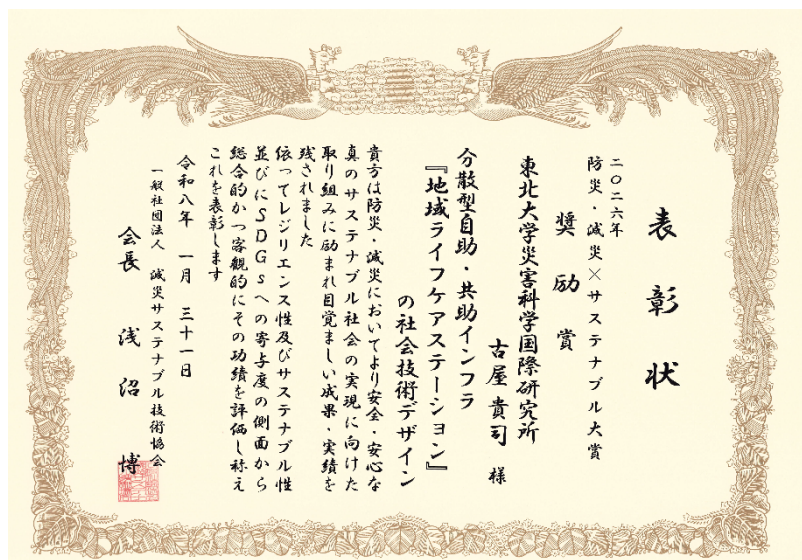 表彰状
二〇二六年
防災・減災×サステナブル大賞
奨励賞
東北大学災害科学国際研究所
古屋貴司 様
分散型自助・共助インフラ
『地域ライフケアステーション』
の社会技術デザイン
貴方は防災・減災においてより安全・安心な
真のサステナブル社会の実現に向けた
取り組みに励まれ目覚ましい成果・実績を
残されました
依ってレジリエンス性及びサステナブル性
並びにSDGsへの寄与度の側面から
総合的かつ客観的にその功績を評価し称え
これを表彰します
令和八年 一月 三十一日
一般社団法人 減災サステナブル技術協会
会長 浅沼 博